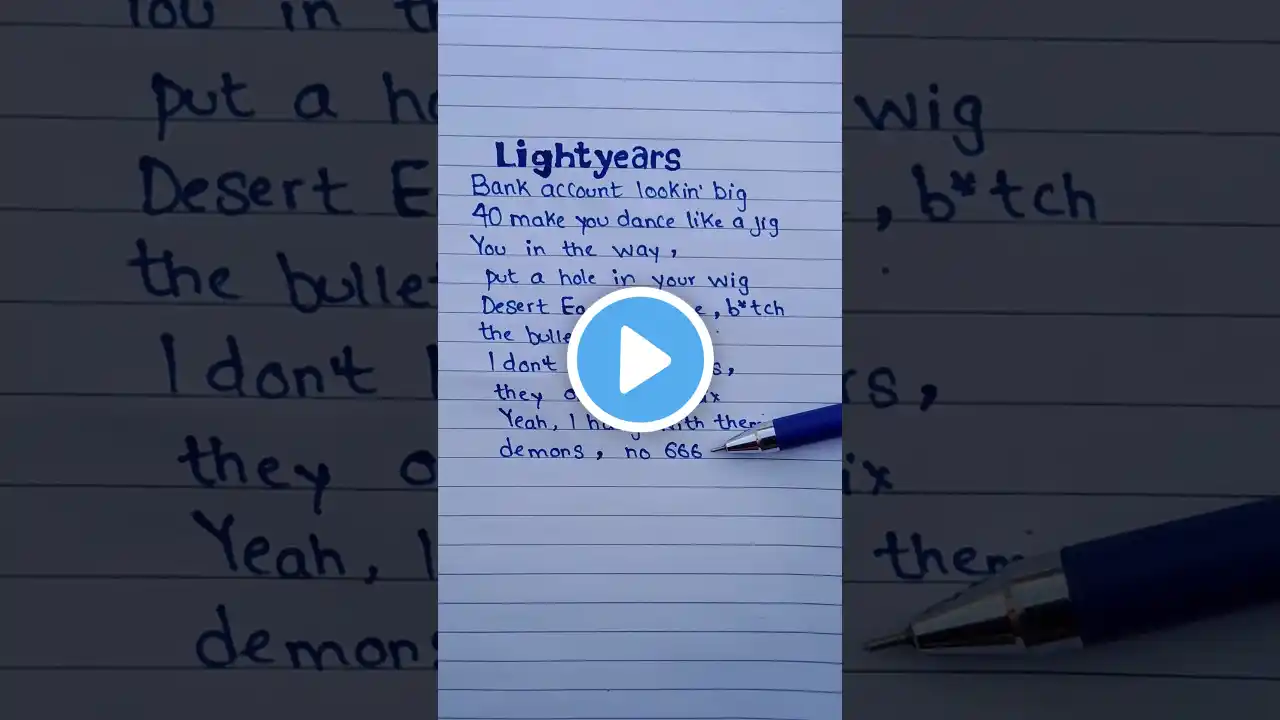 Lightyears
Bank account lookin' big
40 make you dance like a jig
You in the way,
put a hole in your wig
Desert , b*tch
the
I don't
they
Yeah, I
demons, no 666